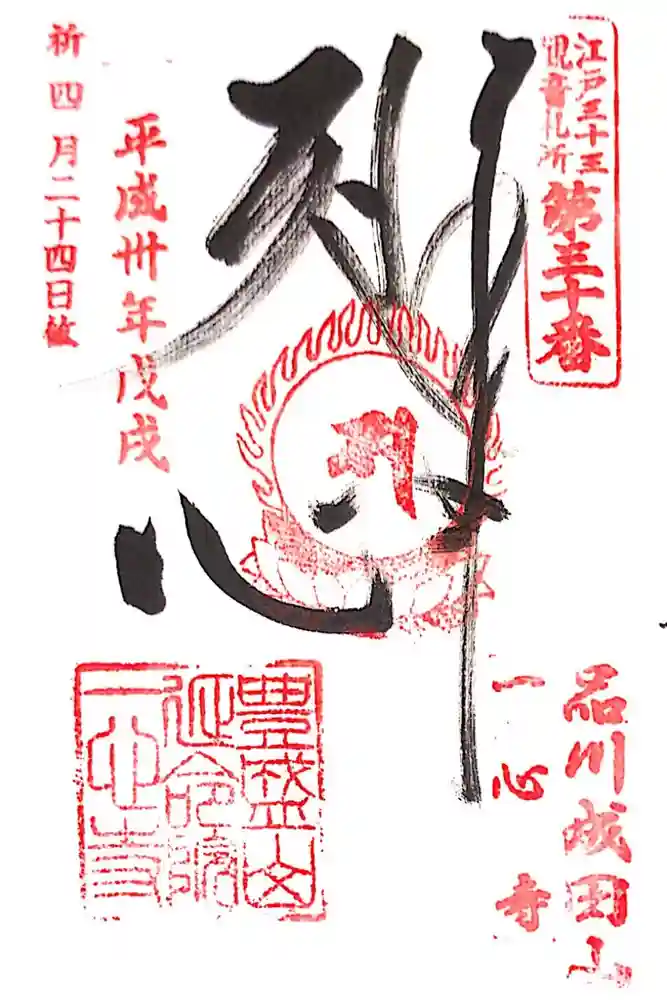 江戸三十三
観音札所
第三十番
心
平成卅年戊戌
祈 四月二十四日敬
品川成田山
一心寺
豊盛山
延命院
一心寺